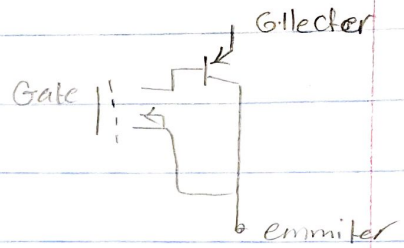 Collecter
Gate
emmiter